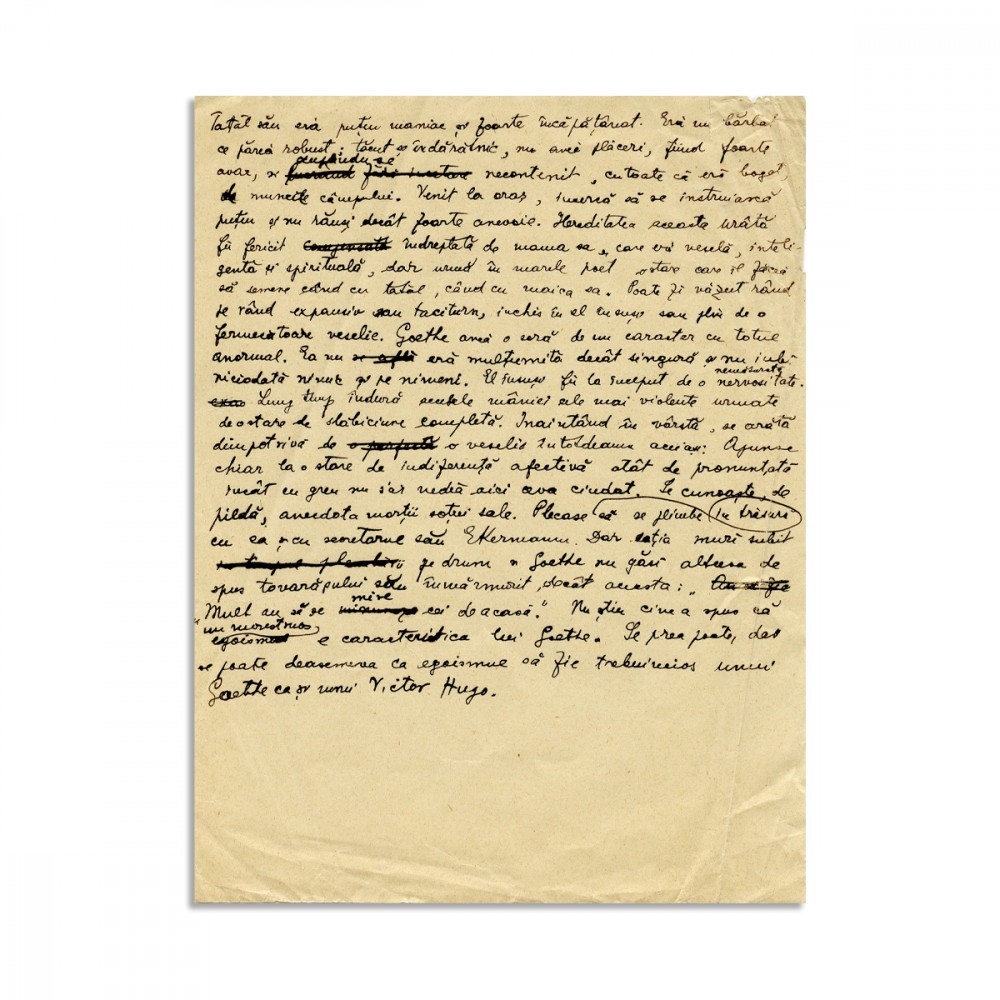 Tatăl său era puțin maniac și foarte încăpățânat. Era un bărbat
ce părea robust; tăcut și îndărătnic, nu avea plăceri, fiind foarte
avar, și
necontenit, cu toate că era bogat,
de muncile câmpului. Venit la oraș, încercă să se instruiască
puțin și nu reuși decât foarte anevoie. Hereditatea aceasta urâtă
fu fericit îndreptată de mama sa, care era veselă, inteli-
gentă și spirituală, dar urmă în marele poet o stare care îl făcea
să semene când cu tatăl, când cu maica sa. Poate fi văzut rând
pe rând expansiv sau taciturn, închis în el însuși sau plin de o
fermecătoare veselie. Goethe avea o soră de un caracter cu totul
anormal. Ea nu era mulțumită decât singură și nu iubi
niciodată nimic și pe nimeni. El însuși fu la început de o nemăsurată nervozitate.
Lung timp îndură accesele mâniei cele mai violente urmate
de o stare de slăbiciune completă. Înaintând în vârstă, se arătă
dimpotrivă de o veselie întotdeauna aceiași. Ajunse
chiar la o stare de indiferență afectivă atât de pronunțată
încât cu greu nu s'ar vedea aici ceva ciudat. Se cunoaște, de
pildă, anecdota morții soției sale. Plecase să se plimbe în trăsură
cu ea și cu secretarul său Ekermann. Dar soția muri subit
pe drum și Goethe nu găsi altceva de
spus tovarășului său înmărmurit, decât aceasta: „
Mult au să se mire cei de acasă." Nu știu cine a spus că
"un monstruos
egoism" e caracteristica lui Goethe. Se prea poate, dar
se poate deasemenea ca egoismul să fie trebuincios unui
Goethe ca și unui Victor Hugo.